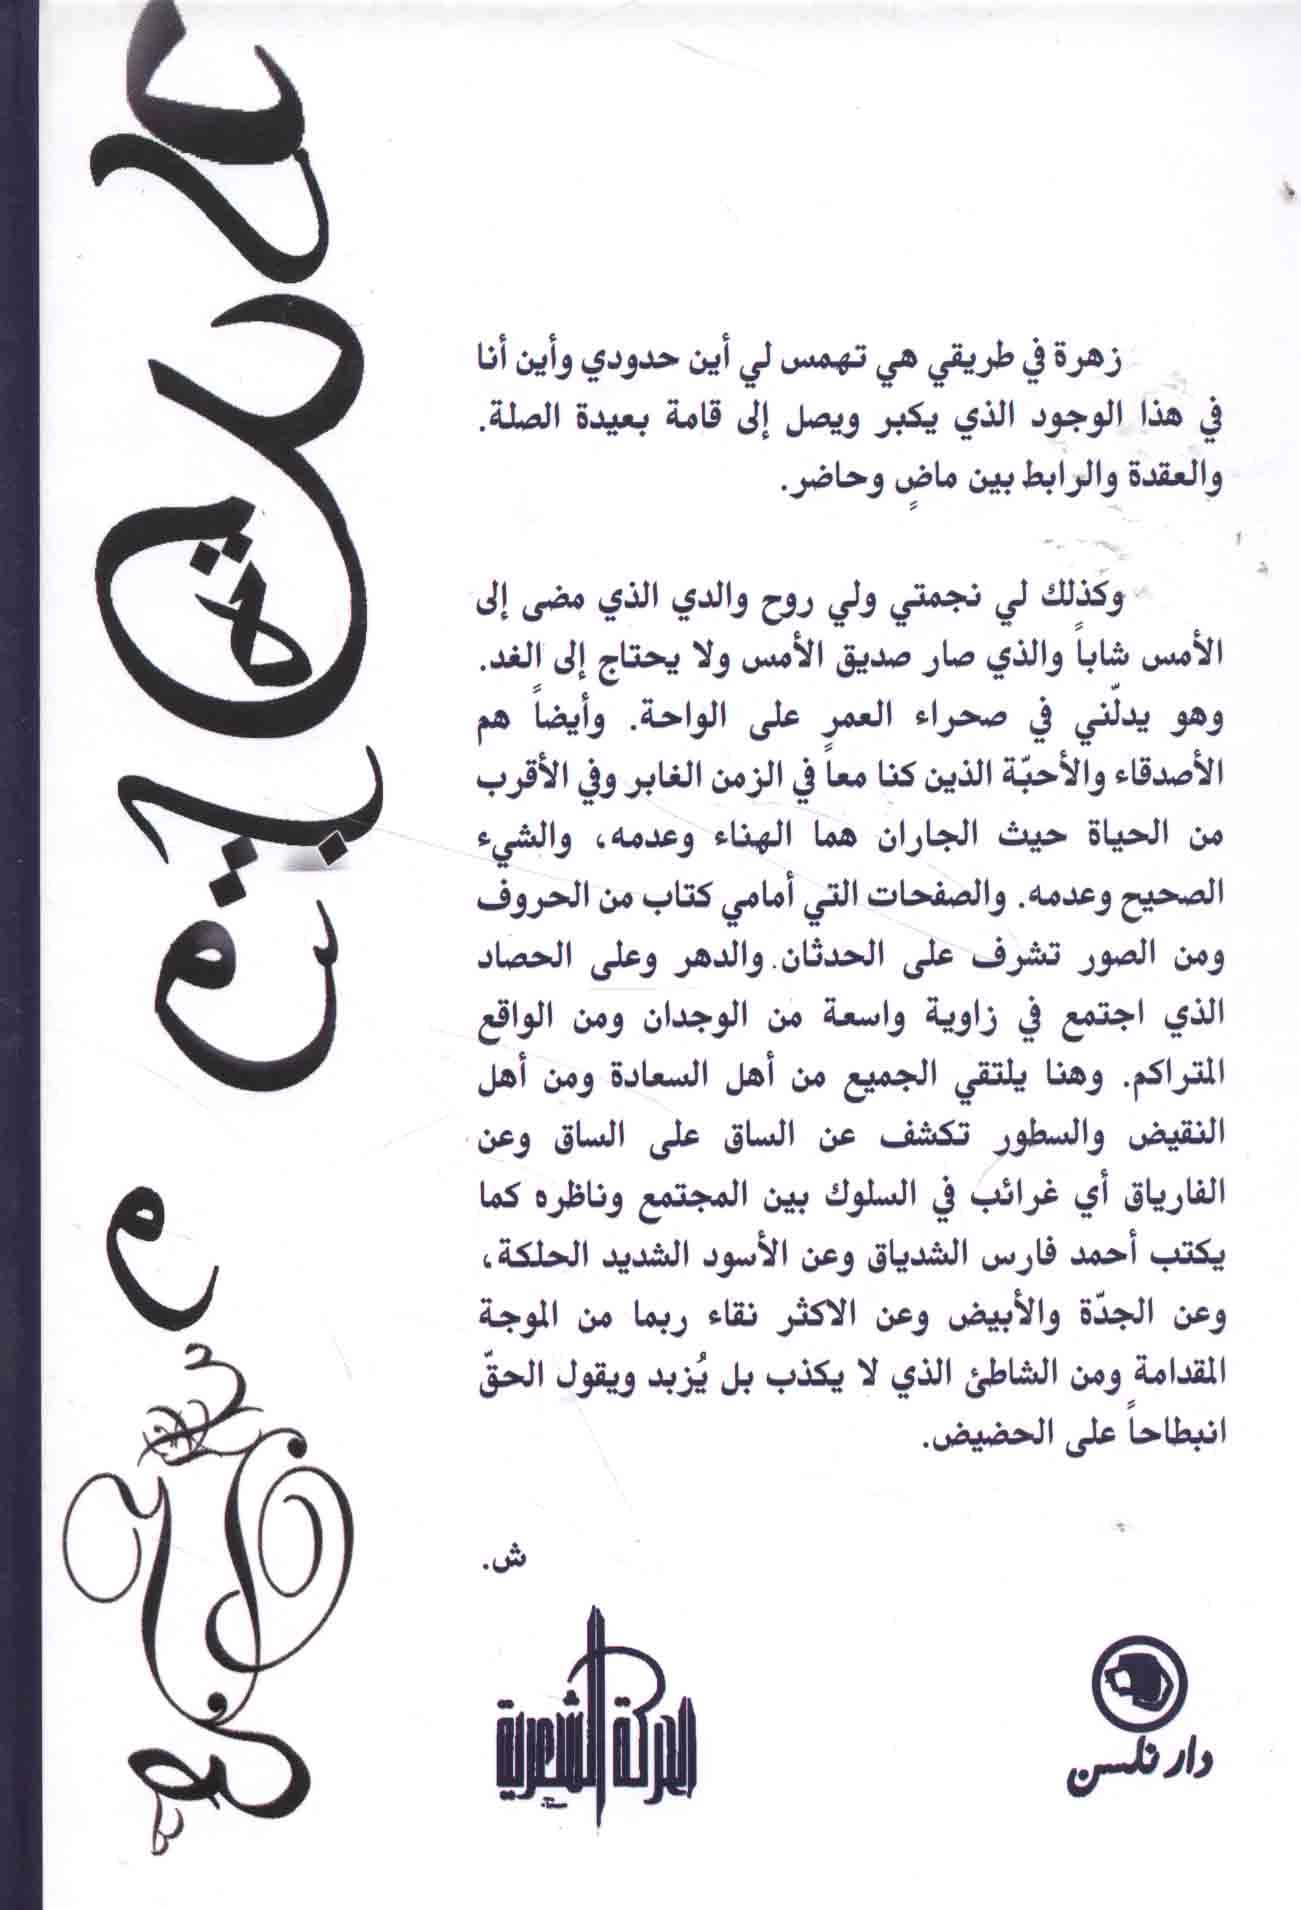 زهرة في طريقي هي تهمس لي أين حدودي وأين أنا
في هذا الوجود الذي يكبر ويصل إلى قامة بعيدة الصلة.
والعقدة والرابط بين ماضٍ وحاضر.
وكذلك لي نجمتي ولي روح والدي الذي مضى إلى
الأمس شاباً والذي صار صديق الأمس ولا يحتاج إلى الغد.
وهو يدلّني في صحراء العمر على الواحة. وأيضاً هم
الأصدقاء والأحبّة الذين كنا معاً في الزمن الغابر وفي الأقرب
من الحياة حيث الجاران هما الهناء وعدمه، والشيء
الصحيح وعدمه. والصفحات التي أمامي كتاب من الحروف
ومن الصور تشرف على الحدثان والدهر وعلى الحصاد
الذي اجتمع في زاوية واسعة من الوجدان ومن الواقع
المتراكم. وهنا يلتقي الجميع من أهل السعادة ومن أهل
النقيض والسطور تكشف عن الساق على الساق وعن
الفارياق أي غرائب في السلوك بين المجتمع وناظره كما
يكتب أحمد فارس الشدياق وعن الأسود الشديد الحلكة،
وعن الجدّة والأبيض وعن الاكثر نقاء ربما من الموجة
المقدامة ومن الشاطئ الذي لا يكذب بل يُزبد ويقول الحقّ
انبطاحاً على الحضيض.
ش.
الحركة الشعرية
دار نلسن